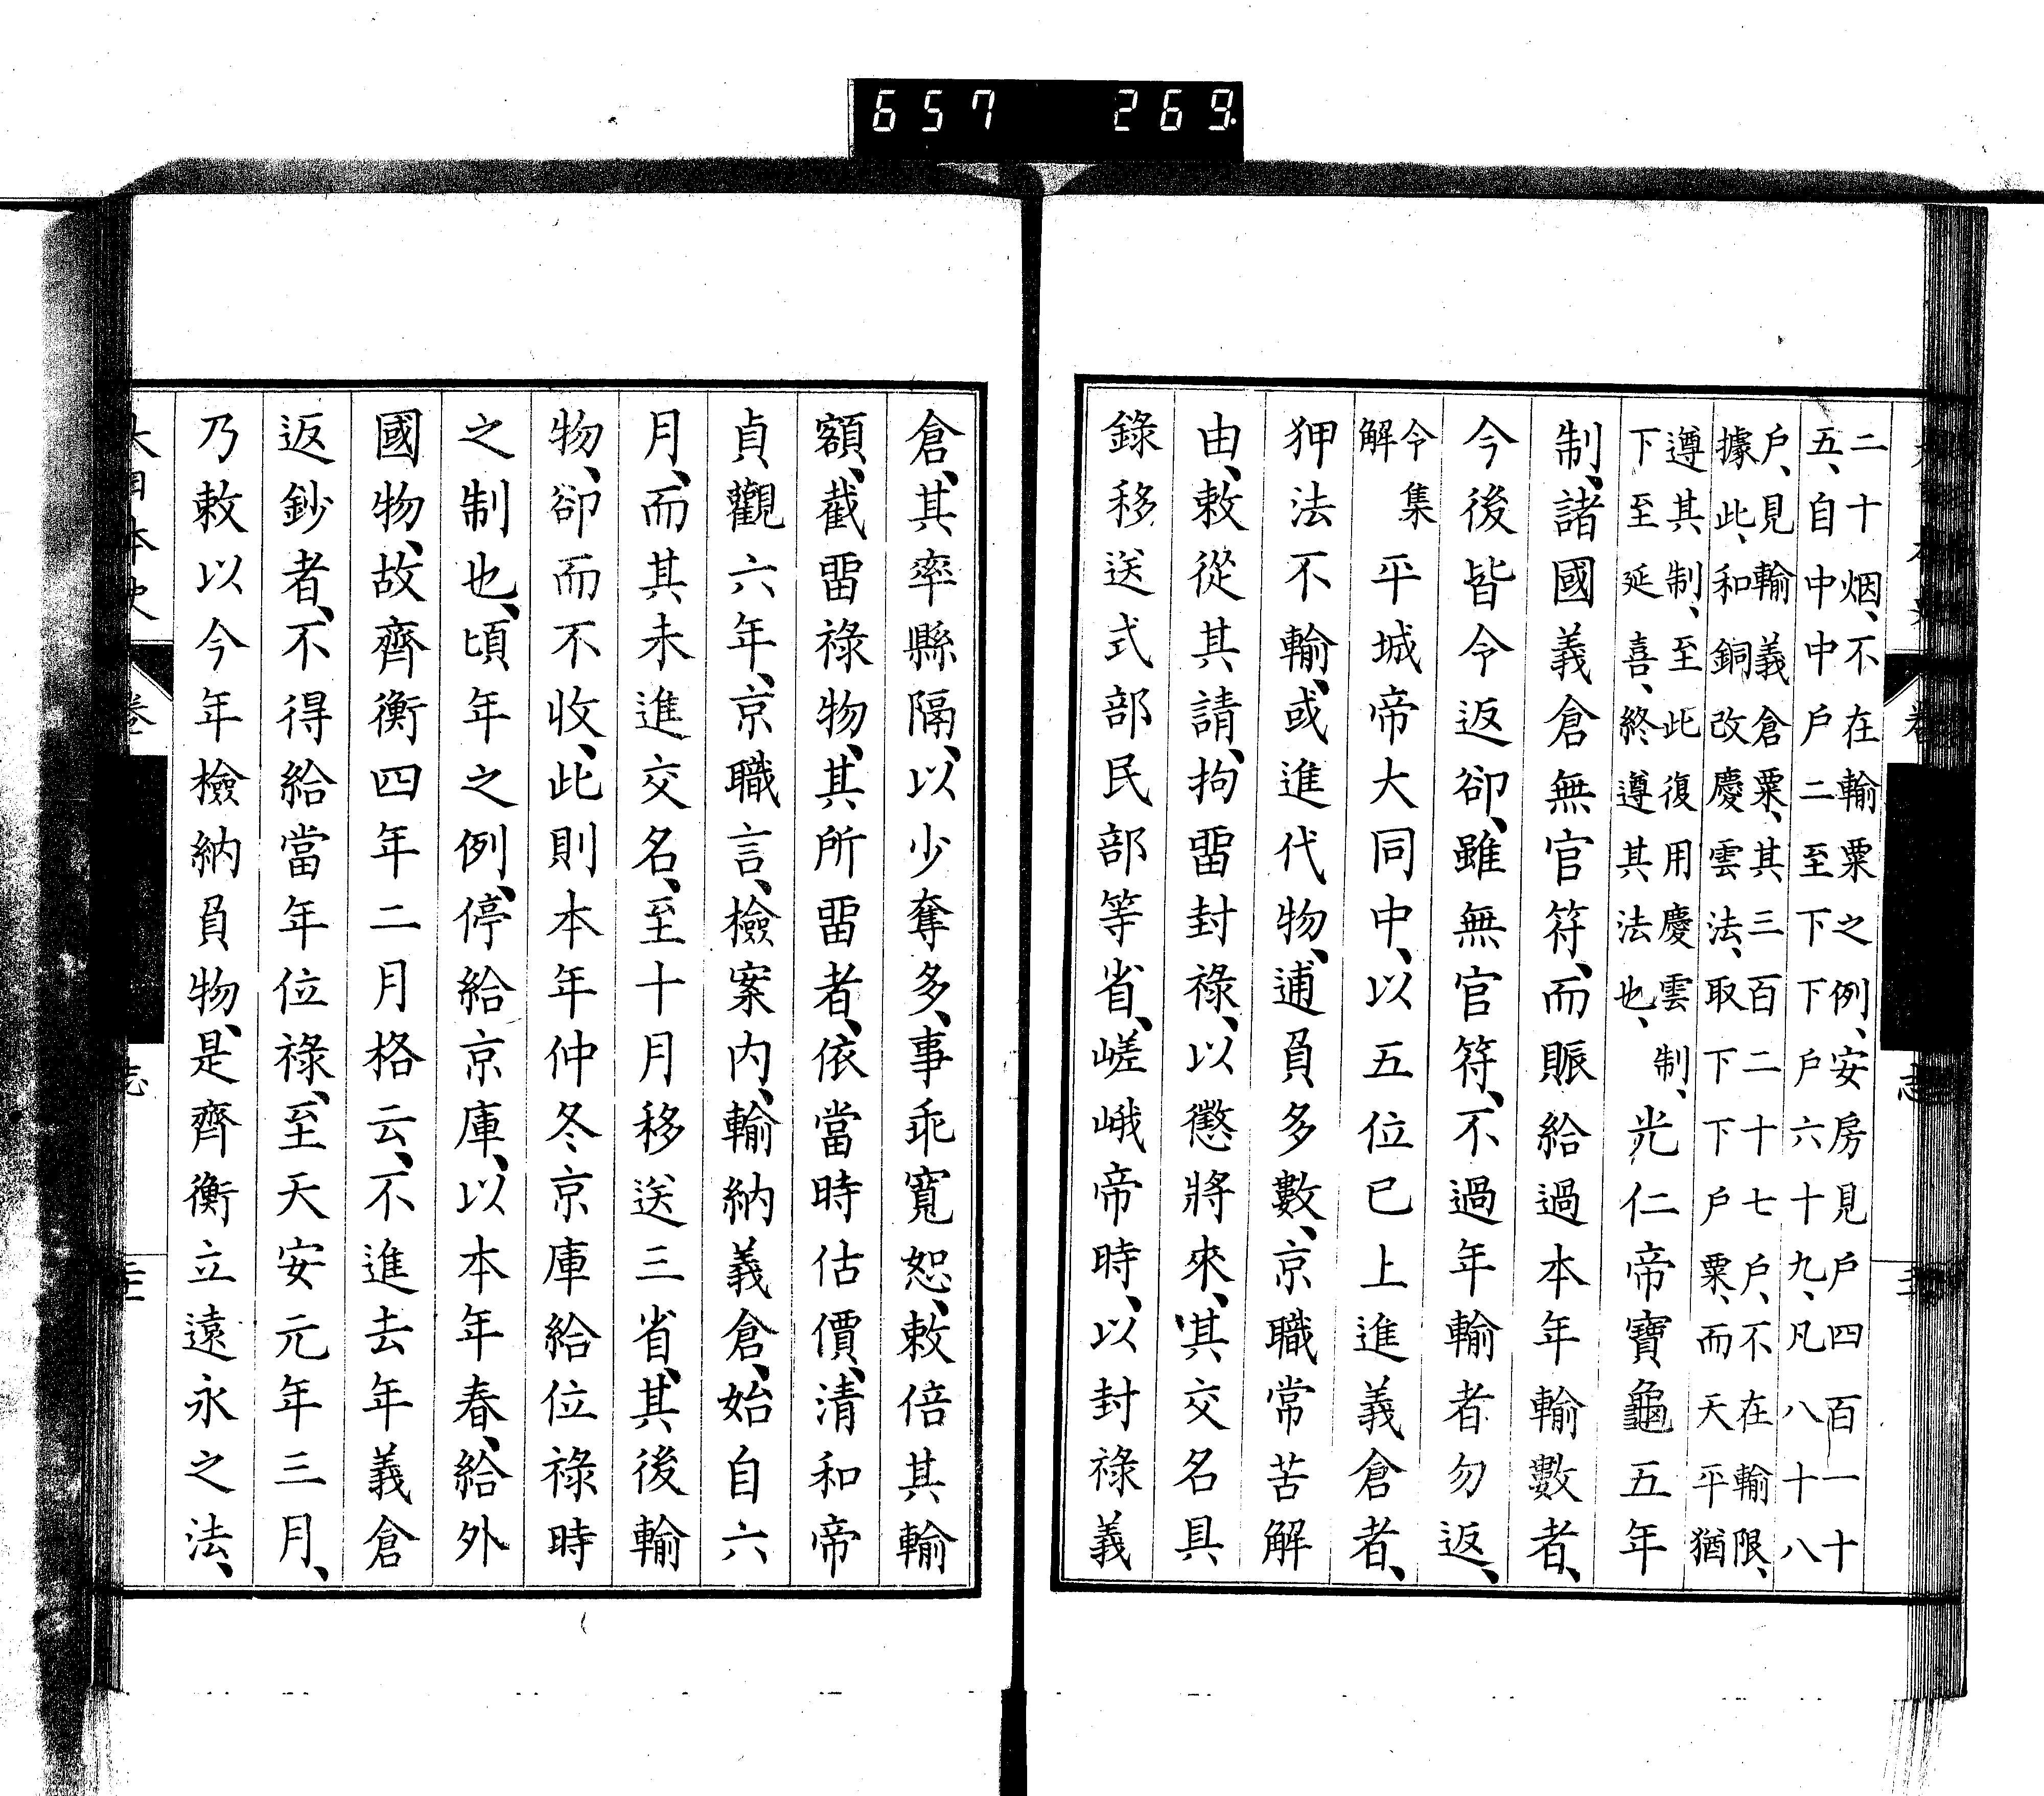 657 269
二十烟、不在輸粟之例、安房見戶四百一十
五、自中中戶二至下下戶六十九、凡八十八
戶、見輸義倉粟、其三百二十七戶、不在輸限、
據此、和銅改慶雲法、取下下戶粟、而天平猶
遵其制、至此復用慶雲制、
下至延喜、終遵其法也、
光仁帝寶龜五年
制、諸國義倉無官符、而賑給過本年輸數者、
今後皆令返卻、雖無官符、不過年輸者勿返、
令集
解
平城帝大同中、以五位已上進義倉者、
狎法不輸、或進代物、逋負多數、京職常苦解
由、敕從其請、拘畱封祿、以懲將來、其交名具
錄移送式部民部等省、嵯峨帝時、以封祿義
倉、其率縣隔、以少奪多、事乖寬恕、敕倍其輸
額、截畱祿物、其所畱者、依當時估價、清和帝
貞觀六年、京職言、檢案內、輸納義倉、始自六
月、而其未進交名、至十月移送三省、其後輸
物、卻而不收、此則本年仲冬京庫給位祿時
之制也、頃年之例、停給京庫、以本年春、給外
國物、故齊衡四年二月格云、不進去年義倉
返鈔者、不得給當年位祿、至天安元年三月、
乃敕以今年檢納負物、是齊衡立遠永之法、